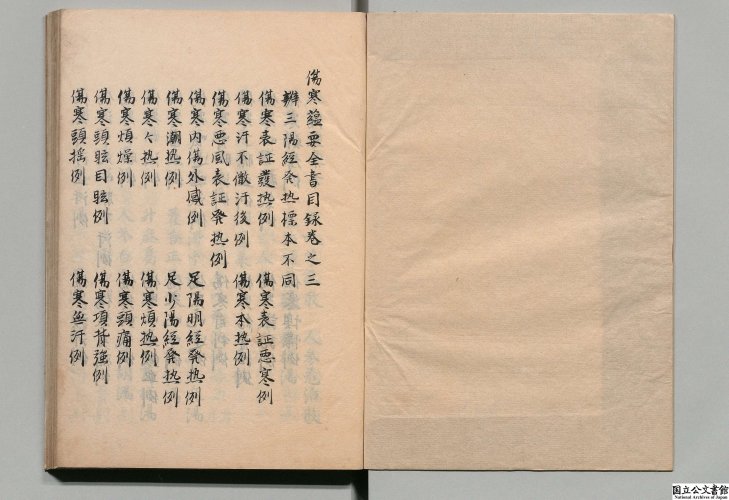 傷寒蘊要全書目録巻之三
辨三陽經発热標本不同
傷寒表証發热例 傷寒表証悪寒例
傷寒汗不徹汗後例 傷寒本热例
傷寒悪風表証発热例
傷寒内傷外感例 足陽明經発热例
傷寒潮热例 足少陽經発热例
傷寒々热例 傷寒煩热例
傷寒煩燥例 傷寒頭痛例
傷寒頭眩目眩例 傷寒項背強例
傷寒頭揺例 傷寒無汗例
国立公文書館
National Archives of Japan